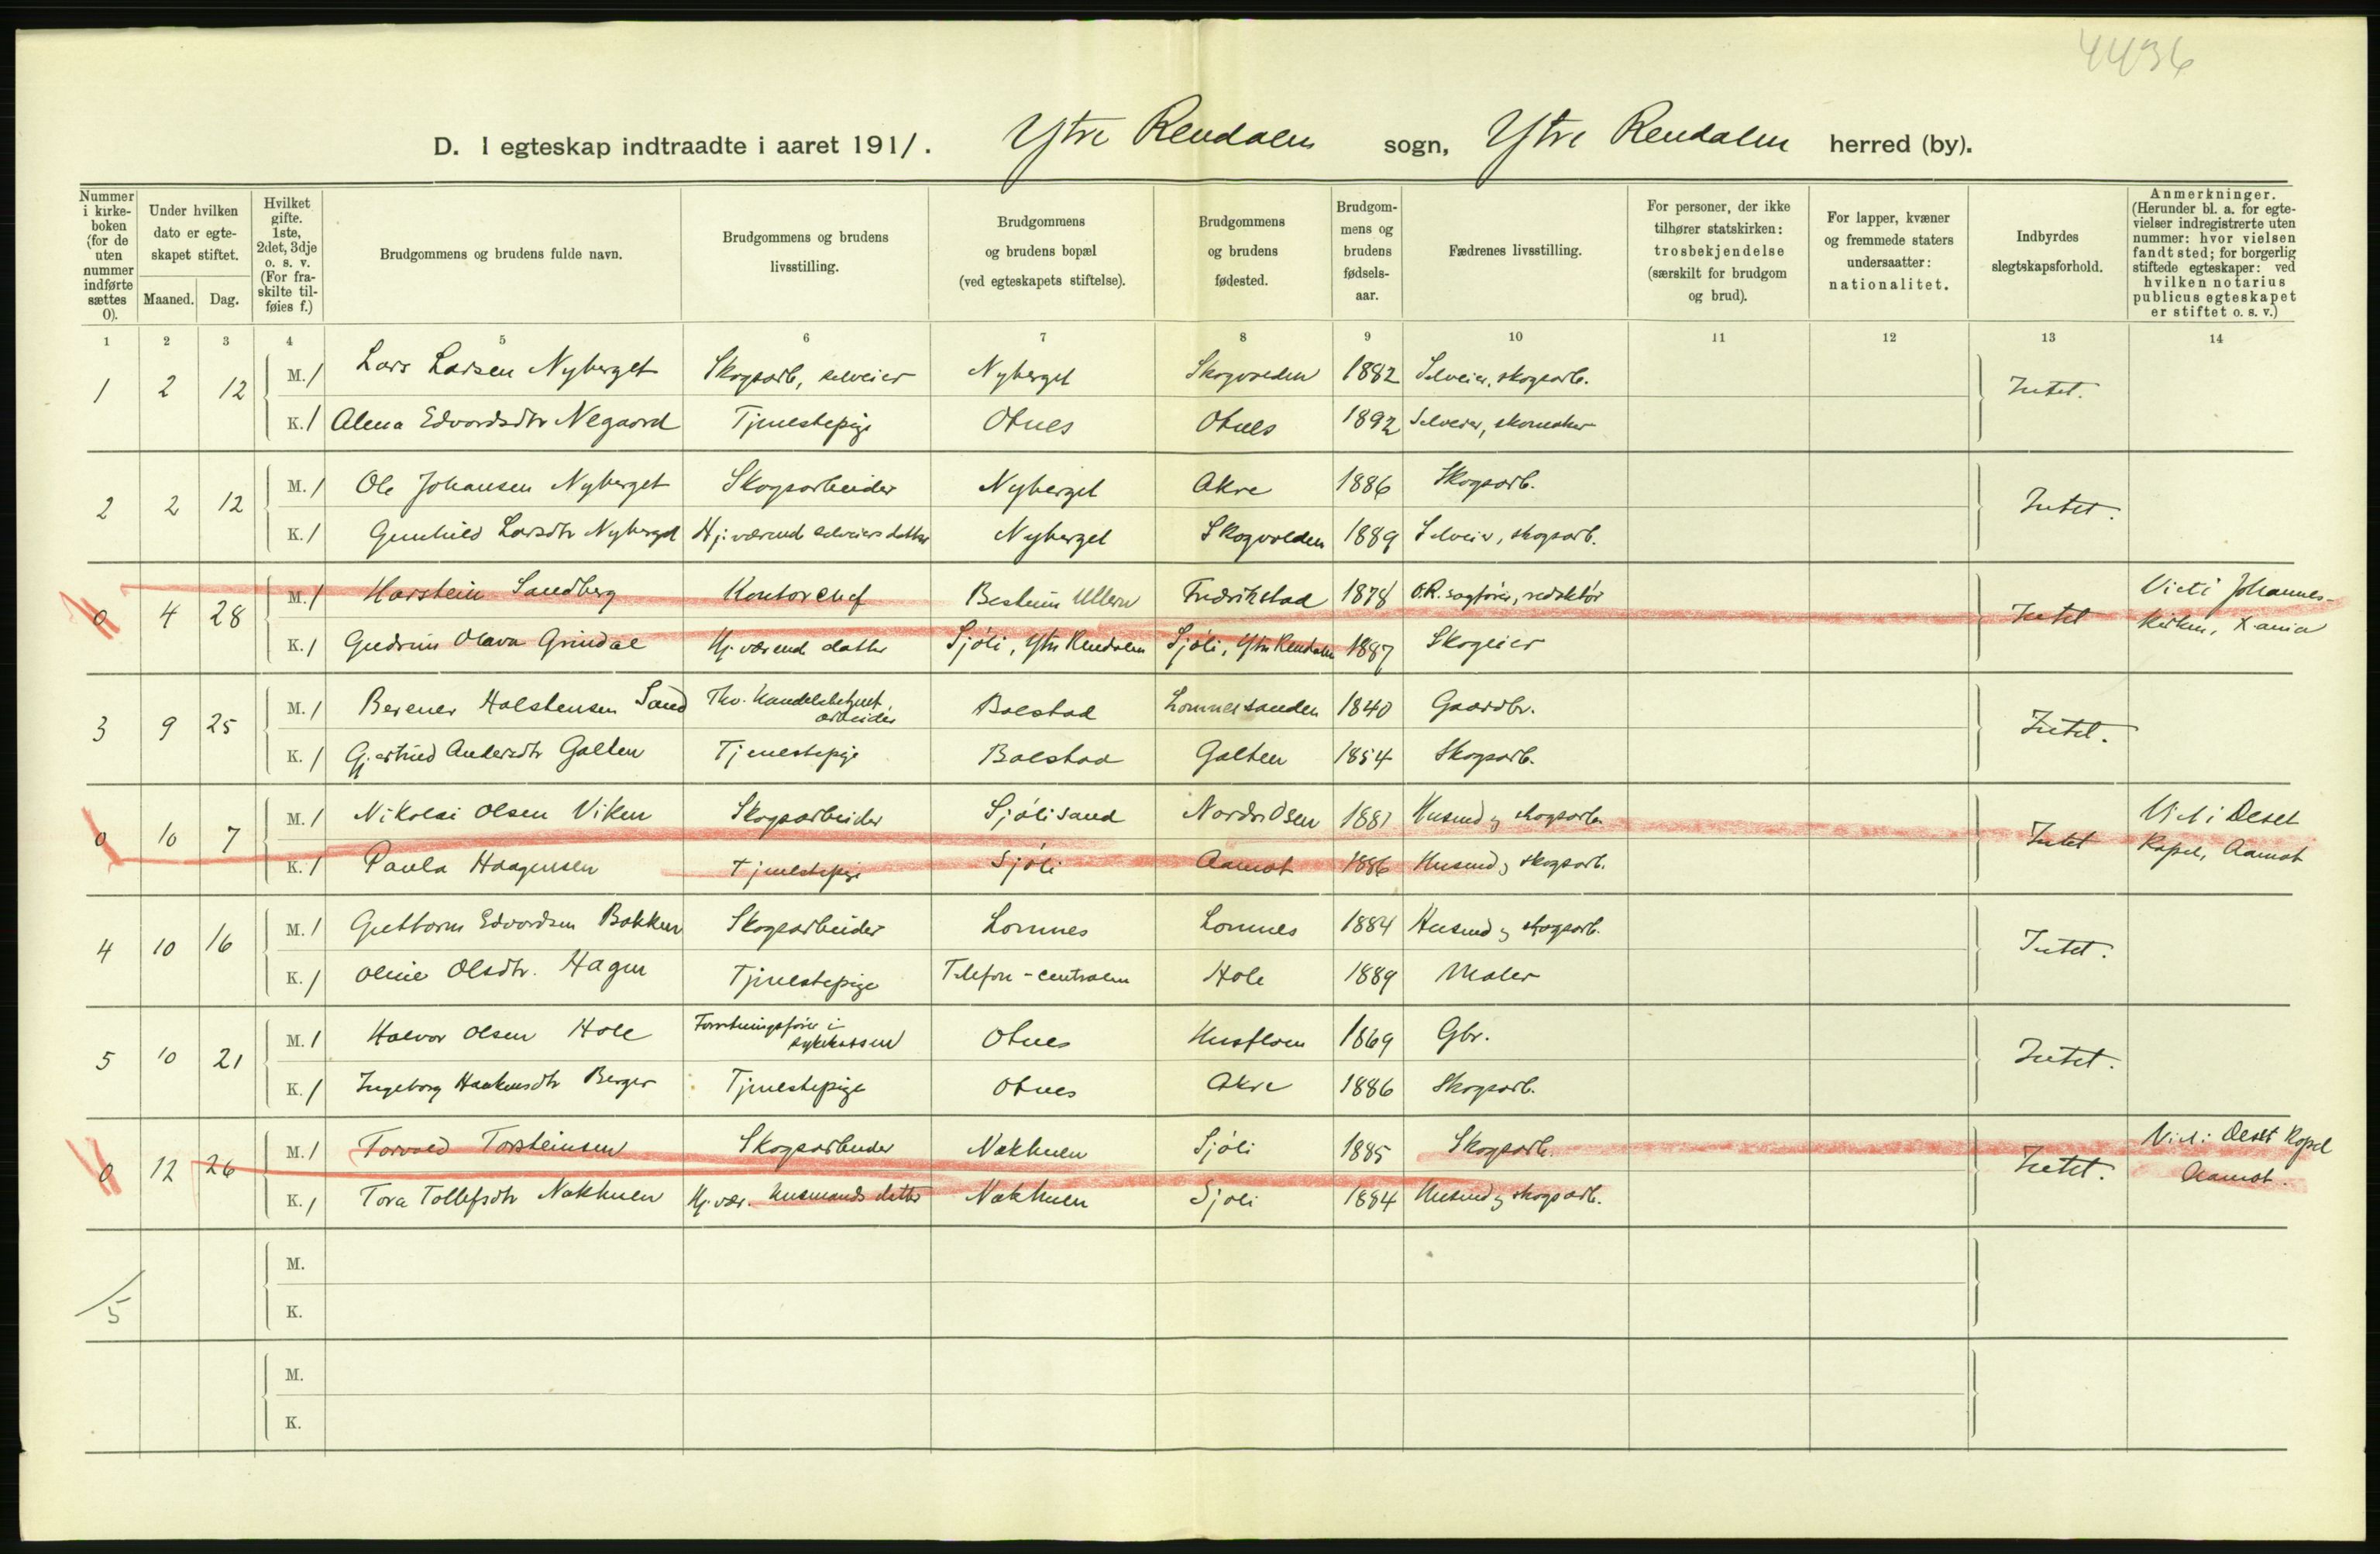 4436
D. I egteskap indtraadte i aaret 1911. Ytre Rendalen sogn, Ytre Rendalen herred (by).
Nummer i kirke-boken (for de uten nummer indførte sættes 0).
Under hvilken dato er egte-skapet stiftet.
Maaned. Dag.
Hvilket gifte. 1ste, 2det, 3dje o. s. v. (For fra-skilte til-føies f.)
Brudgommens og brudens fulde navn.
Brudgommens og brudens livsstilling.
Brudgommens og brudens bopæl (ved egteskapets stiftelse).
Brudgommens og brudens fødested.
Brudgom-mens og brudens fødsels-aar.
Fædrenes livsstilling.
For personer, der ikke tilhører statskirken: trosbekjendelse (særskilt for brudgom og brud).
For lapper, kvæner og fremmede staters undersaatter: nationalitet.
Indbyrdes slegtskapsforhold.
Anmerkninger. (Herunder bl. a. for egte-vielser indregistrerte uten nummer: hvor vielsen fandt sted; for borgerlig stiftede egteskaper: ved hvilken notarius publicus egteskapet er stiftet o. s. v.)
1 2 3 4 5 6 7 8 9 10 11 12 13 14
1 2 12 M. 1 Lars Larsen Nyberget Skogsarb, selveier Nyberget Skogvolden 1882 Selveier, skogsarb. Intet.
K. 1 Alena Edvardsdtr Negaard Tjenestepige Otnes Otnes 1892 Selveier, skomaker
2 2 12 M. 1 Ole Johansen Nyberget Skogsarbeider Nyberget Akre 1886 Skogsarb. Intet.
K. 1 Gunhild Larsdtr Nyberget Hj. værend selveiers datter Nyberget Skogvolden 1889 Selveier, skogsarb.
0 4 28 M. 1 Harstein Sandberg Kontorchef Bestum Ullern Fredrikstad 1878 O.R. sagfører, redaktør Intet Viet i Johannes-
K. 1 Gudrun Olava Grindal Hj. værend datter Sjøli, Ytre Rendalen Sjøli, Ytre Rendalen 1887 Skogeier kirken, X.ania
3 9 25 M. 1 Berener Halstensen Sand Fhv. Handelsbetjent, arbeider Bolstad Lomnessanden 1840 Gaardbr. Intet.
K. 1 Gjertrud Andersdtr Galten Tjenestepige Bolstad Galten 1854 Skogsarb.
0 10 7 M. 1 Nikolai Olsen Viken Skogsarbeider Sjølisand Nordre Osen 1881 Husmd og skogsarb. Intet Viet i Deset
K. 1 Paula Haagensen Tjenestepige Sjøli Aamot 1886 Husmd og skogsarb. Kapel, Aamot
4 10 16 M. 1 Guttorm Edvardsen Bakken Skogsarbeider Lomnes Lomnes 1884 Husmd og skogsarb. Intet.
K. 1 Oline Olsdtr. Hagen Tjenestepige Telefon-centralen Hole 1889 Maler
5 10 21 M. 1 Halvor Olsen Hole Forretningsfører i sykekassen Otnes Husfloen 1869 Gbr. Intet.
K. 1 Ingeborg Haakensdtr Berger Tjenestepige Otnes Akre 1886 Skogsarb.
0 12 26 M. 1 Torvald Torsteinsen Skogsarbeider Nakhuen Sjøli 1885 Skogsarb. Intet. Viet i Deset Kapel
K. 1 Tora Tollefsdtr Nakhuen Hj. vær. husmands datter Nakhuen Sjøli 1884 Husmd og skogsarb. Aamot.
M.
5 K.
M.
K.